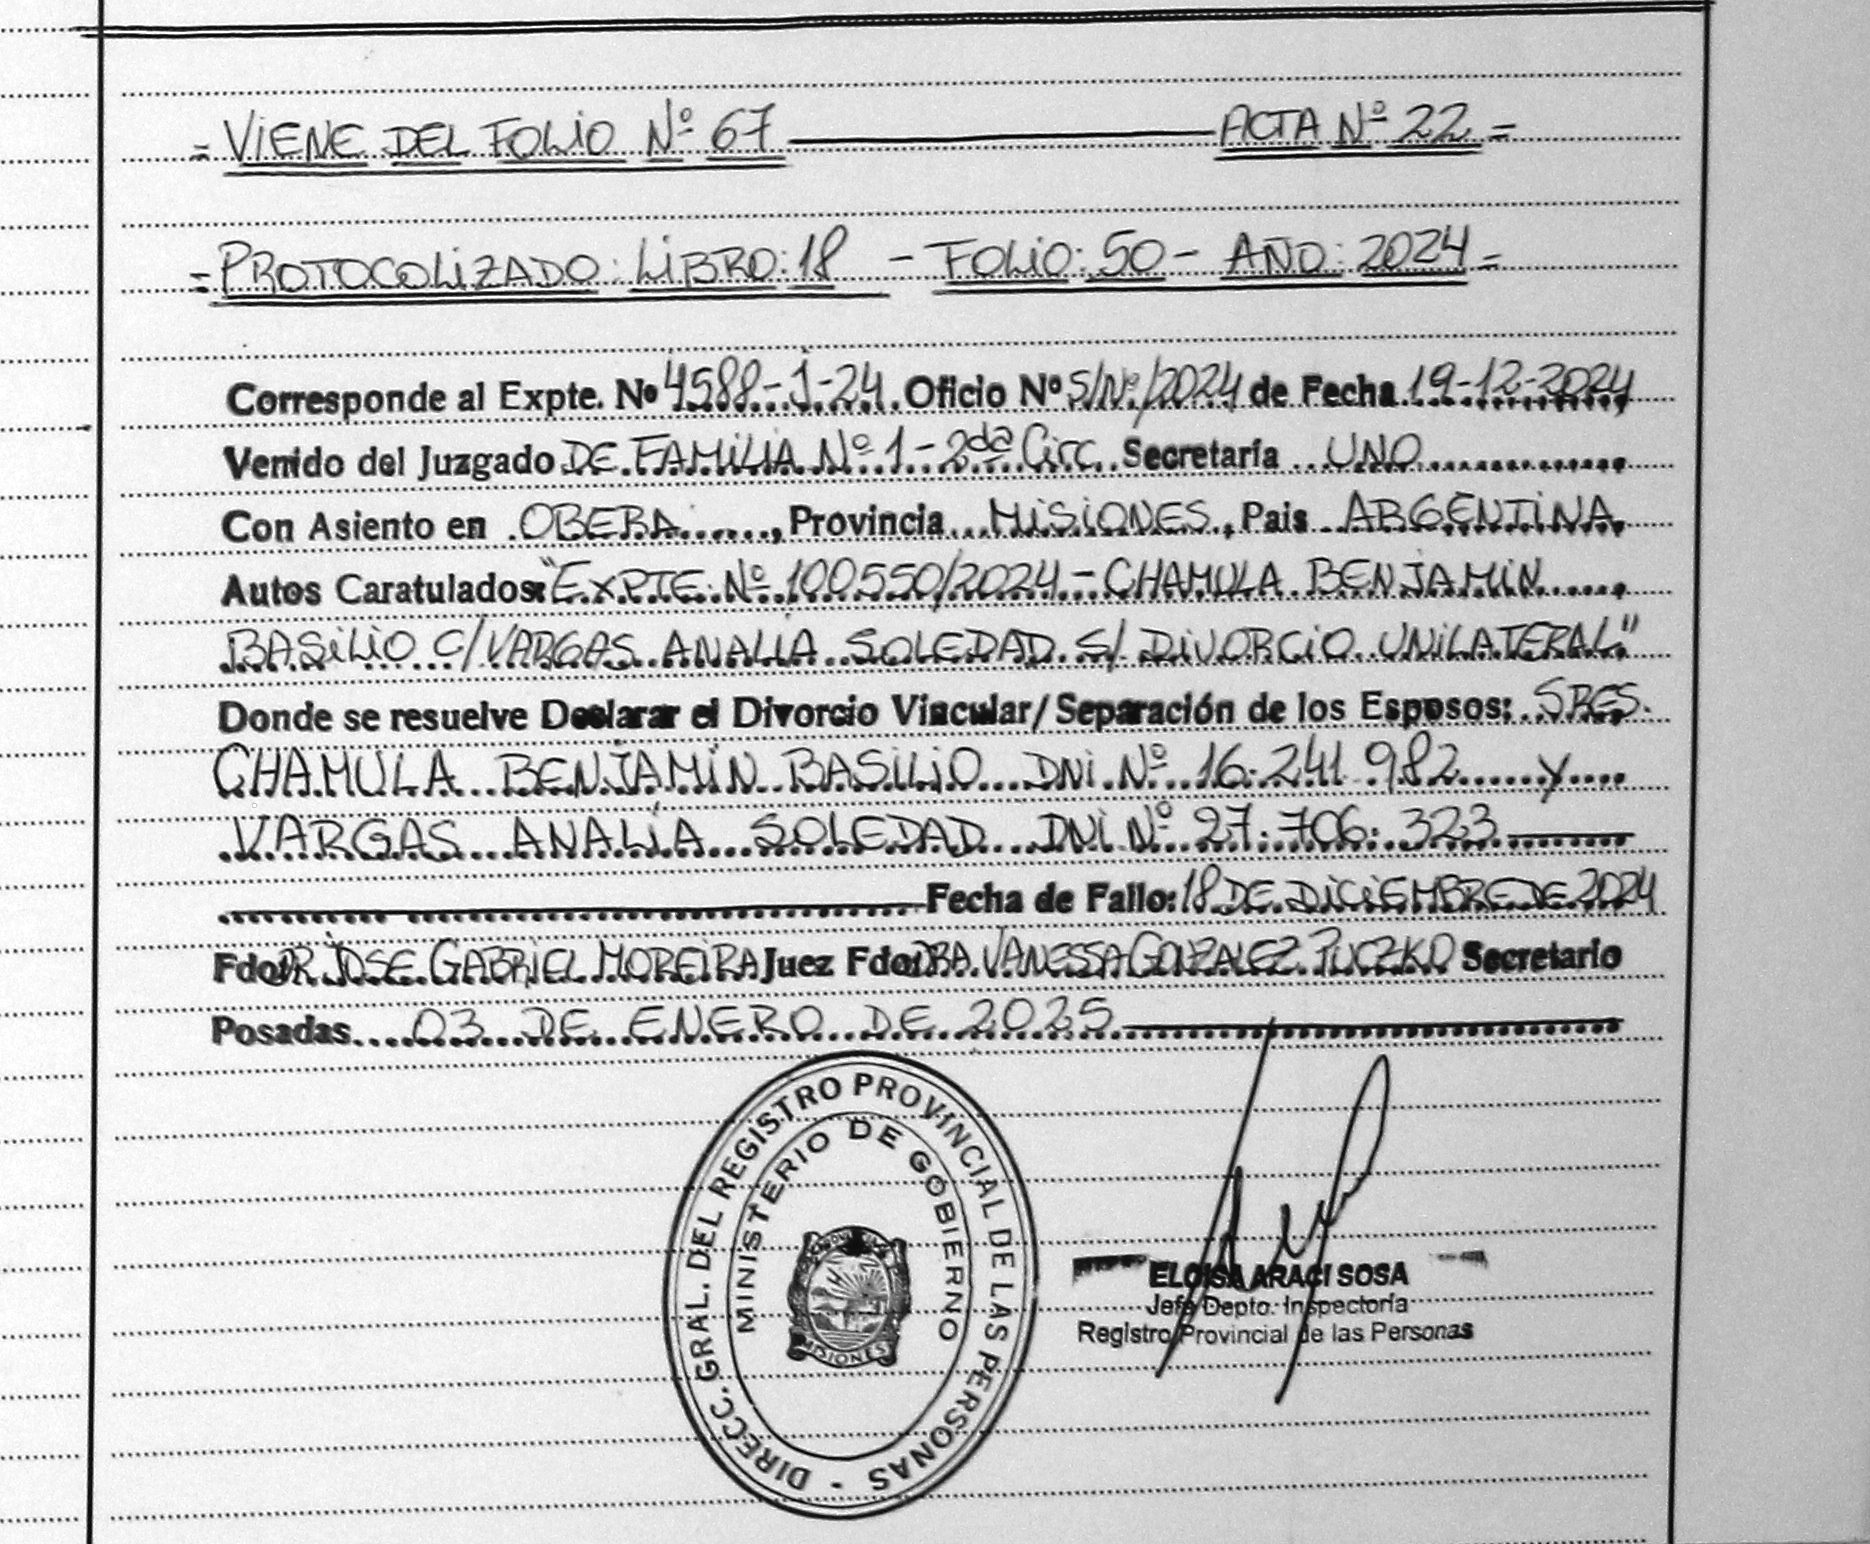 = VIENE DEL FOLIO Nº 67 ——— ACTA Nº 22 =
= PROTOCOLIZADO: LIBRO: 18 - FOLIO: 50 - AÑO: 2024 =
Corresponde al Expte. Nº 4588-J-24. Oficio Nº S/Nº/2024 de Fecha 19-12-2024
Venido del Juzgado DE FAMILIA Nº 1 - 2da Circ. Secretaría UNO
Con Asiento en OBERA, Provincia MISIONES, Pais ARGENTINA
Autos Caratulados: "EXPTE Nº 100550/2024 - CHAMULA BENJAMIN
BASILIO C/ VARGAS ANALIA SOLEDAD S/ DIVORCIO UNILATERAL"
Donde se resuelve Declarar el Divorcio Vincular/Separación de los Esposos: SRES.
CHAMULA BENJAMIN BASILIO DNI Nº 16.241.982 y
VARGAS ANALÍA SOLEDAD DNI Nº 27.706.323
Fecha de Fallo: 18 DE DICIEMBRE DE 2024
Fdo: DR. JOSE GABRIEL MOREIRA Juez Fdo: DRA. VANESSA GONZALEZ PUCZKO Secretario
Posadas 03 DE ENERO DE 2025
DIRECC. GRAL. DEL REGISTRO PROVINCIAL DE LAS PERSONAS -
MINISTERIO DE GOBIERNO
MISIONES
ELOISA ARACI SOSA
Jefe Depto. Inspectoría
Registro Provincial de las Personas